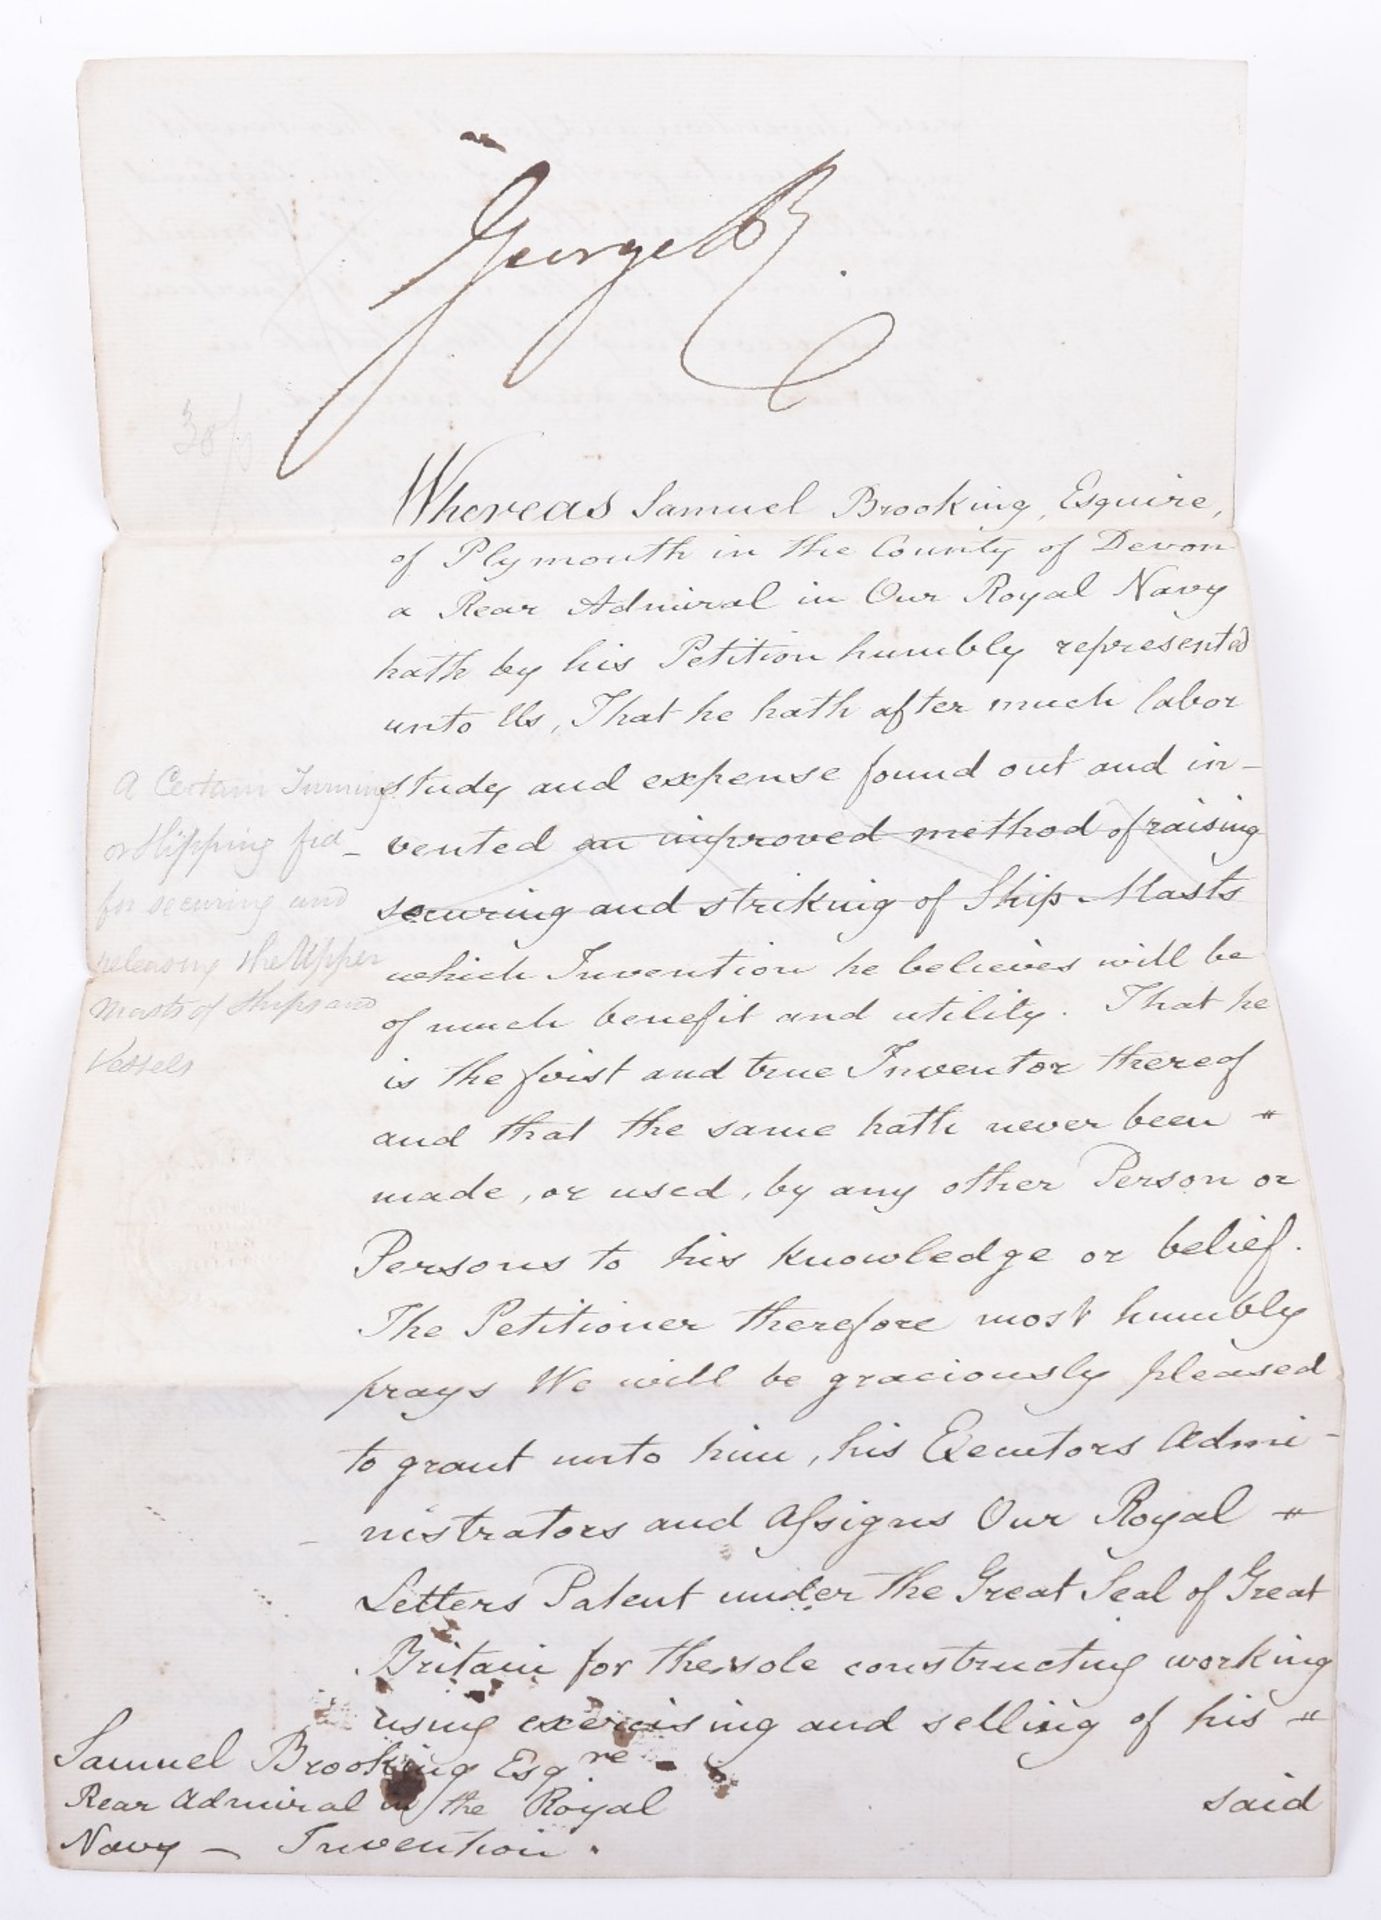 George R.
30/
Whereas Samuel Brooking, Esquire,
of Plymouth in the County of Devon
a Rear Admiral in Our Royal Navy
hath by his Petition humbly represented
unto Us, That he hath after much labor
study and expense found out and in-
vented an improved method of raising
securing and striking of Ship Masts
which Invention he believes will be
of much benefit and utility. That he
is the first and true Inventor thereof
and that the same hath never been "
made, or used, by any other Person or
Persons to his knowledge or belief.
The Petitioner therefore most humbly
prays We will be graciously pleased
to grant unto him, his Executors Admi-
nistrators and Assigns Our Royal "
Letters Patent under the Great Seal of Great
Britain for the sole constructing working
using exercising and selling of his "
said
A Certain Turning
or Slipping fid
for securing and
releasing the Upper
Masts of Ships and
Vessels
Samuel Brooking Esqre
Rear Admiral in the Royal
Navy - Invention.